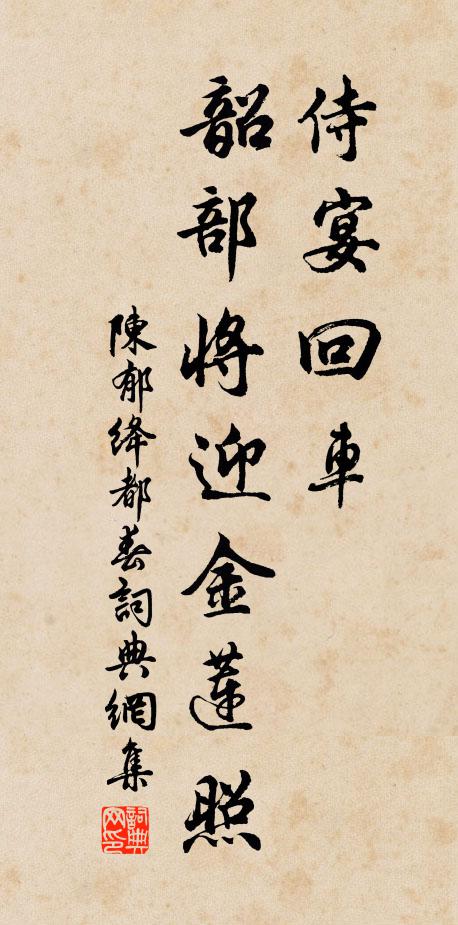 侍宴回車
韶部將迎金蓮照
陳郁絳都春詞典網集
詞典网印